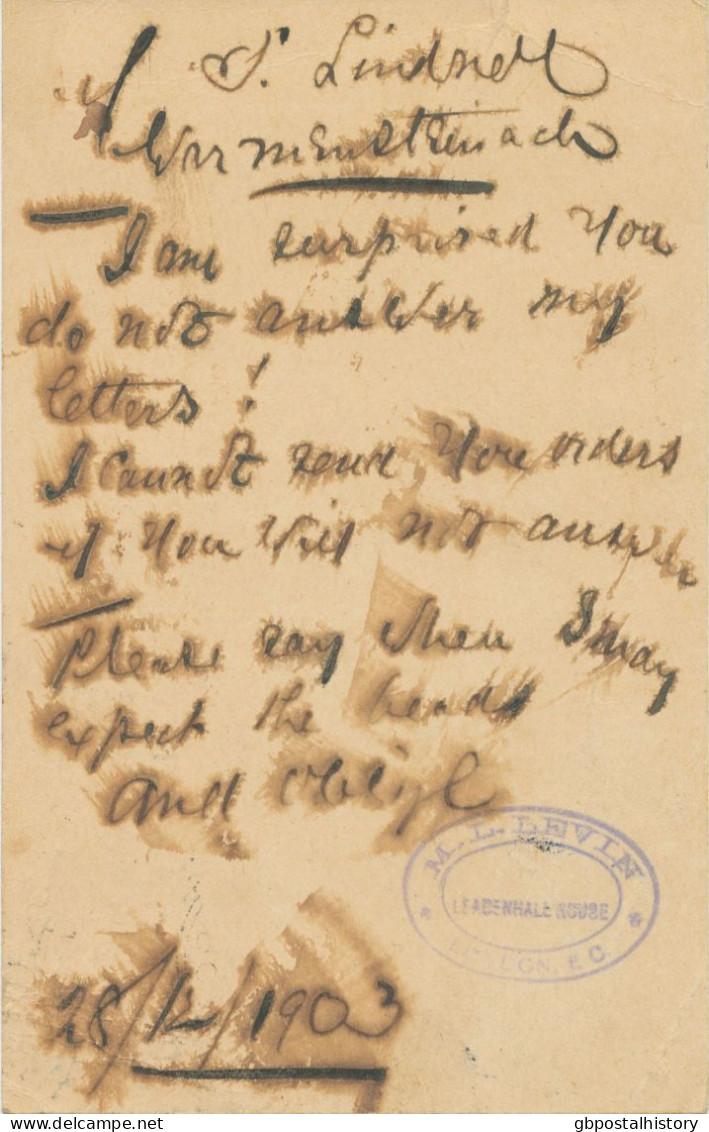 S. Lindner
Warmensteinach
I am surprised You
do not answer my
letters!
I cannot send You orders
if You will not answer
Please say when I may
expect the beads
and oblige
M. L. LEVIN
LEADENHALL HOUSE
LONDON, E C
28/12/1903
gbpostalhistory